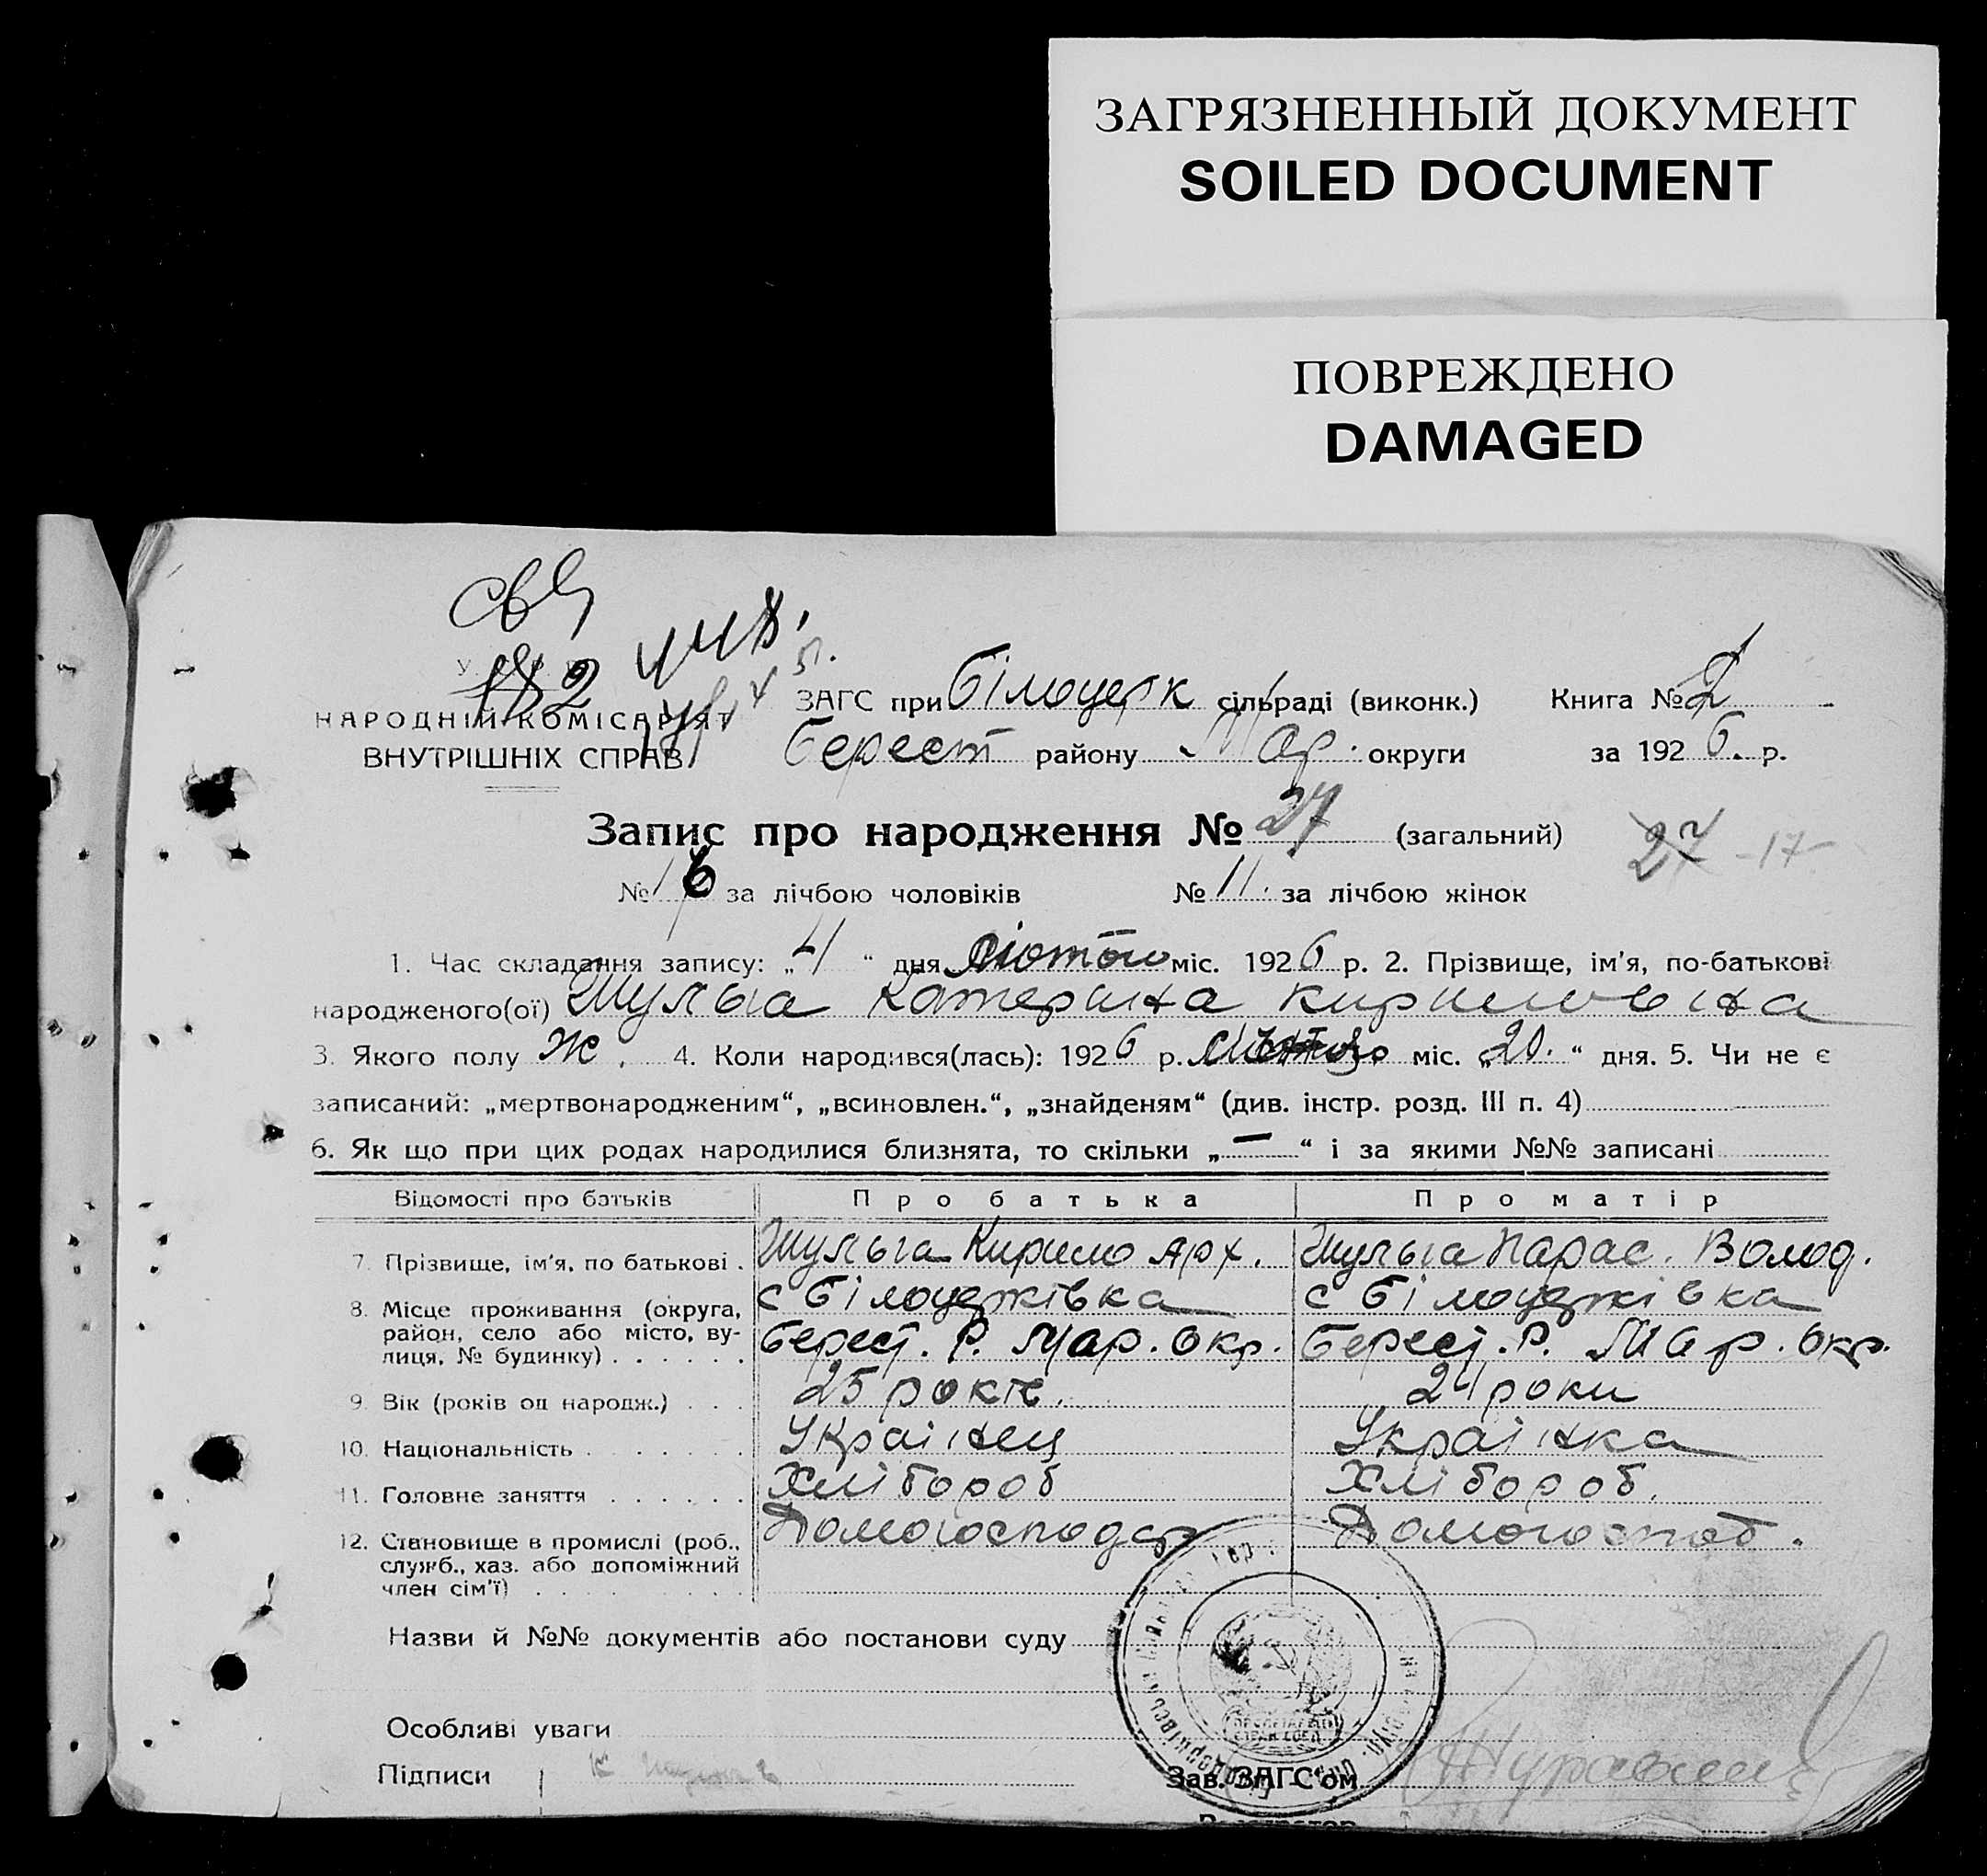 ЗАГРЯЗНЕННЫЙ ДОКУМЕНТ
SOILED DOCUMENT
ПОВРЕЖДЕНО
DAMAGED
НАРОДНІЙ КОМІСАРІЯТ
ВНУТРІШНІХ СПРАВ
ЗАГС при Білоцерк сільраді (виконк.) Книга № 2
Берест району Мар. округи за 1926. р.
Запис про народження № 27 (загальний) 27 -17
№ 16 за лічбою чоловіків № 11. за лічбою жінок
1. Час складання запису: „4“ дня Лютого міс. 1926 р. 2. Прізвище, ім'я, по-батькові
народженого(ої) Шульга Катерина Кириловна
3. Якого полу Ж. 4. Коли народився(лась): 1926 р. міс. „20.“ дня. 5. Чи не є
записаний: „мертвонародженим“, „всиновлен.“, „знайденям“ (див. інстр. розд. III п. 4)
6. Як що при цих родах народилися близнята, то скільки „—“ і за якими №№ записані
Відомості про батьків Про батька Про матір
7. Прізвище, ім'я, по батькові. Шульга Кирило Арх. Шульга Парас. Волод.
8. Місце проживання (округа, район, село або місто, вулиця, № будинку) с Білоцержівка с Білоцержівка
Берест. Р. Мар. Окр. Берест. Р. Мар. Окр.
9. Вік (років од народж.) 25 років. 24 роки
10. Національність Українец Українка
11. Головне заняття Хлібороб Хлібороб.
12. Становище в промислі (роб., Домогосподар Домогоспод.
служб., хаз. або допоміжний
член сім'ї)
Назви й №№ документів або постанови суду
Особливі уваги
Підписи
Зав. ЗАГС'ом